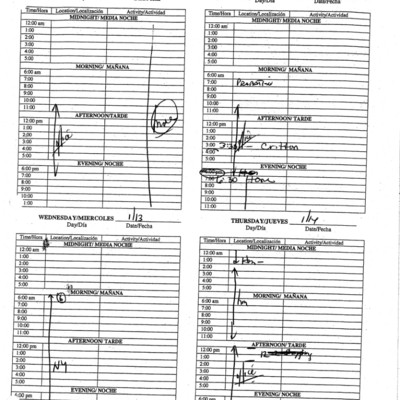 Day/Día Date/Fecha
Time/Hora Location/Localización Activity/Actividad
MIDNIGHT/ MEDIA NOCHE
12:00 am
1:00
2:00
3:00
4:00
5:00
MORNING/ MAÑANA
6:00 am
7:00
8:00
9:00
10:00
11:00
AFTERNOON/TARDE
12:00 pm
1:00
2:00
3:00
4:00
5:00
EVENING/ NOCHE
6:00 pm
7:00
8:00
9:00
10:00
11:00
1:00
Day/Día Date/Fecha
Time/Hora Location/Localización Activity/Actividad
MIDNIGHT/ MEDIA NOCHE
12:00 am
1:00
2:00
3:00
4:00
5:00
MORNING/ MAÑANA
6:00 am
7:00
8:00
9:00
10:00
11:00
AFTERNOON/TARDE
12:00 pm
1:00
2:00
3:00
4:00
5:00
EVENING/ NOCHE
6:30
9:00
10:00
11:00
WEDNESDAY/MIERCOLES 1/13
Day/Día Date/Fecha
Time/Hora Location/Localización Activity/Actividad
MIDNIGHT/ MEDIA NOCHE
12:00 am
1:00
2:00
3:00
4:00
5:00
MORNING/ MAÑANA
6:00 am 6
7:00
8:00
9:00
10:00
11:00
AFTERNOON/ TARDE
12:00 pm
1:00
2:00
3:00 NY
4:00
5:00
EVENING/ NOCHE
6:00 pm
THURSDAY/JUEVES 1/14
Day/Día Date/Fecha
Time/Hora Location/Localización Activity/Actividad
MIDNIGHT/ MEDIA NOCHE
12:00 am
1:00
2:00
3:00
4:00
5:00
MORNING/ MAÑANA
6:00 am
7:00
8:00
9:00
10:00
11:00
AFTERNOON/TARDE
12:00 pm
1:00
2:00
3:00
4:00
5:00
EVENING/ NOCHE